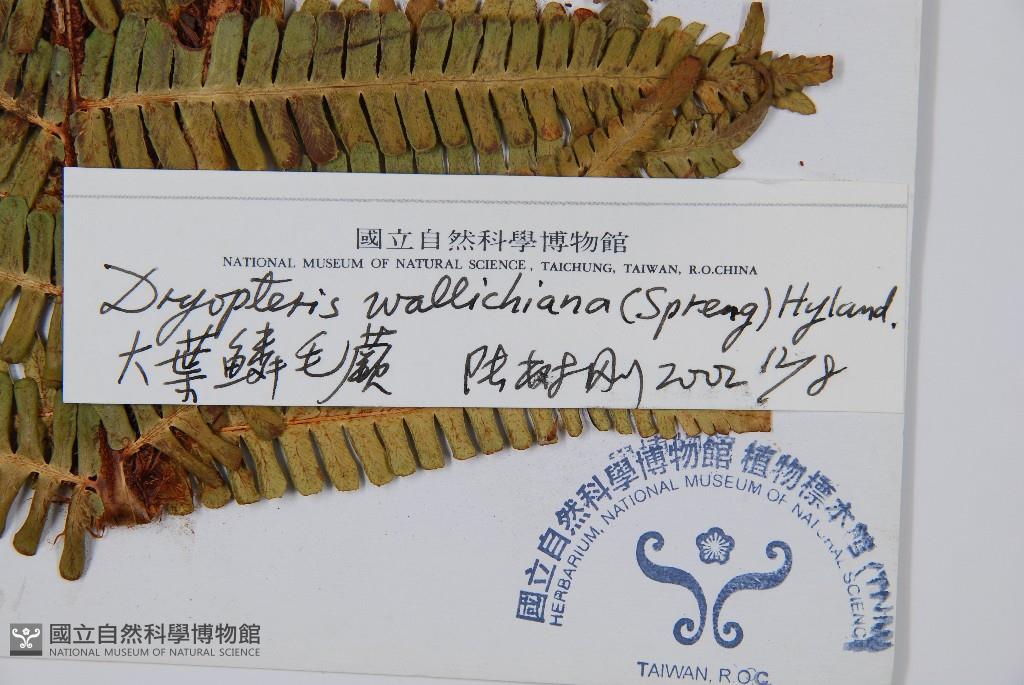 國立自然科學博物館
NATIONAL MUSEUM OF NATURAL SCIENCE, TAICHUNG, TAIWAN, R.O.CHINA
Dryopteris wallichiana (Spreng) Hyland.
大葉鱗毛蕨 陆树刚 2002 12/8
國立自然科學博物館 植物標本館 (TNM)
HERBARIUM, NATIONAL MUSEUM OF NATURAL SCIENCE
TAIWAN, R.O.C.
國立自然科學博物館
NATIONAL MUSEUM OF NATURAL SCIENCE